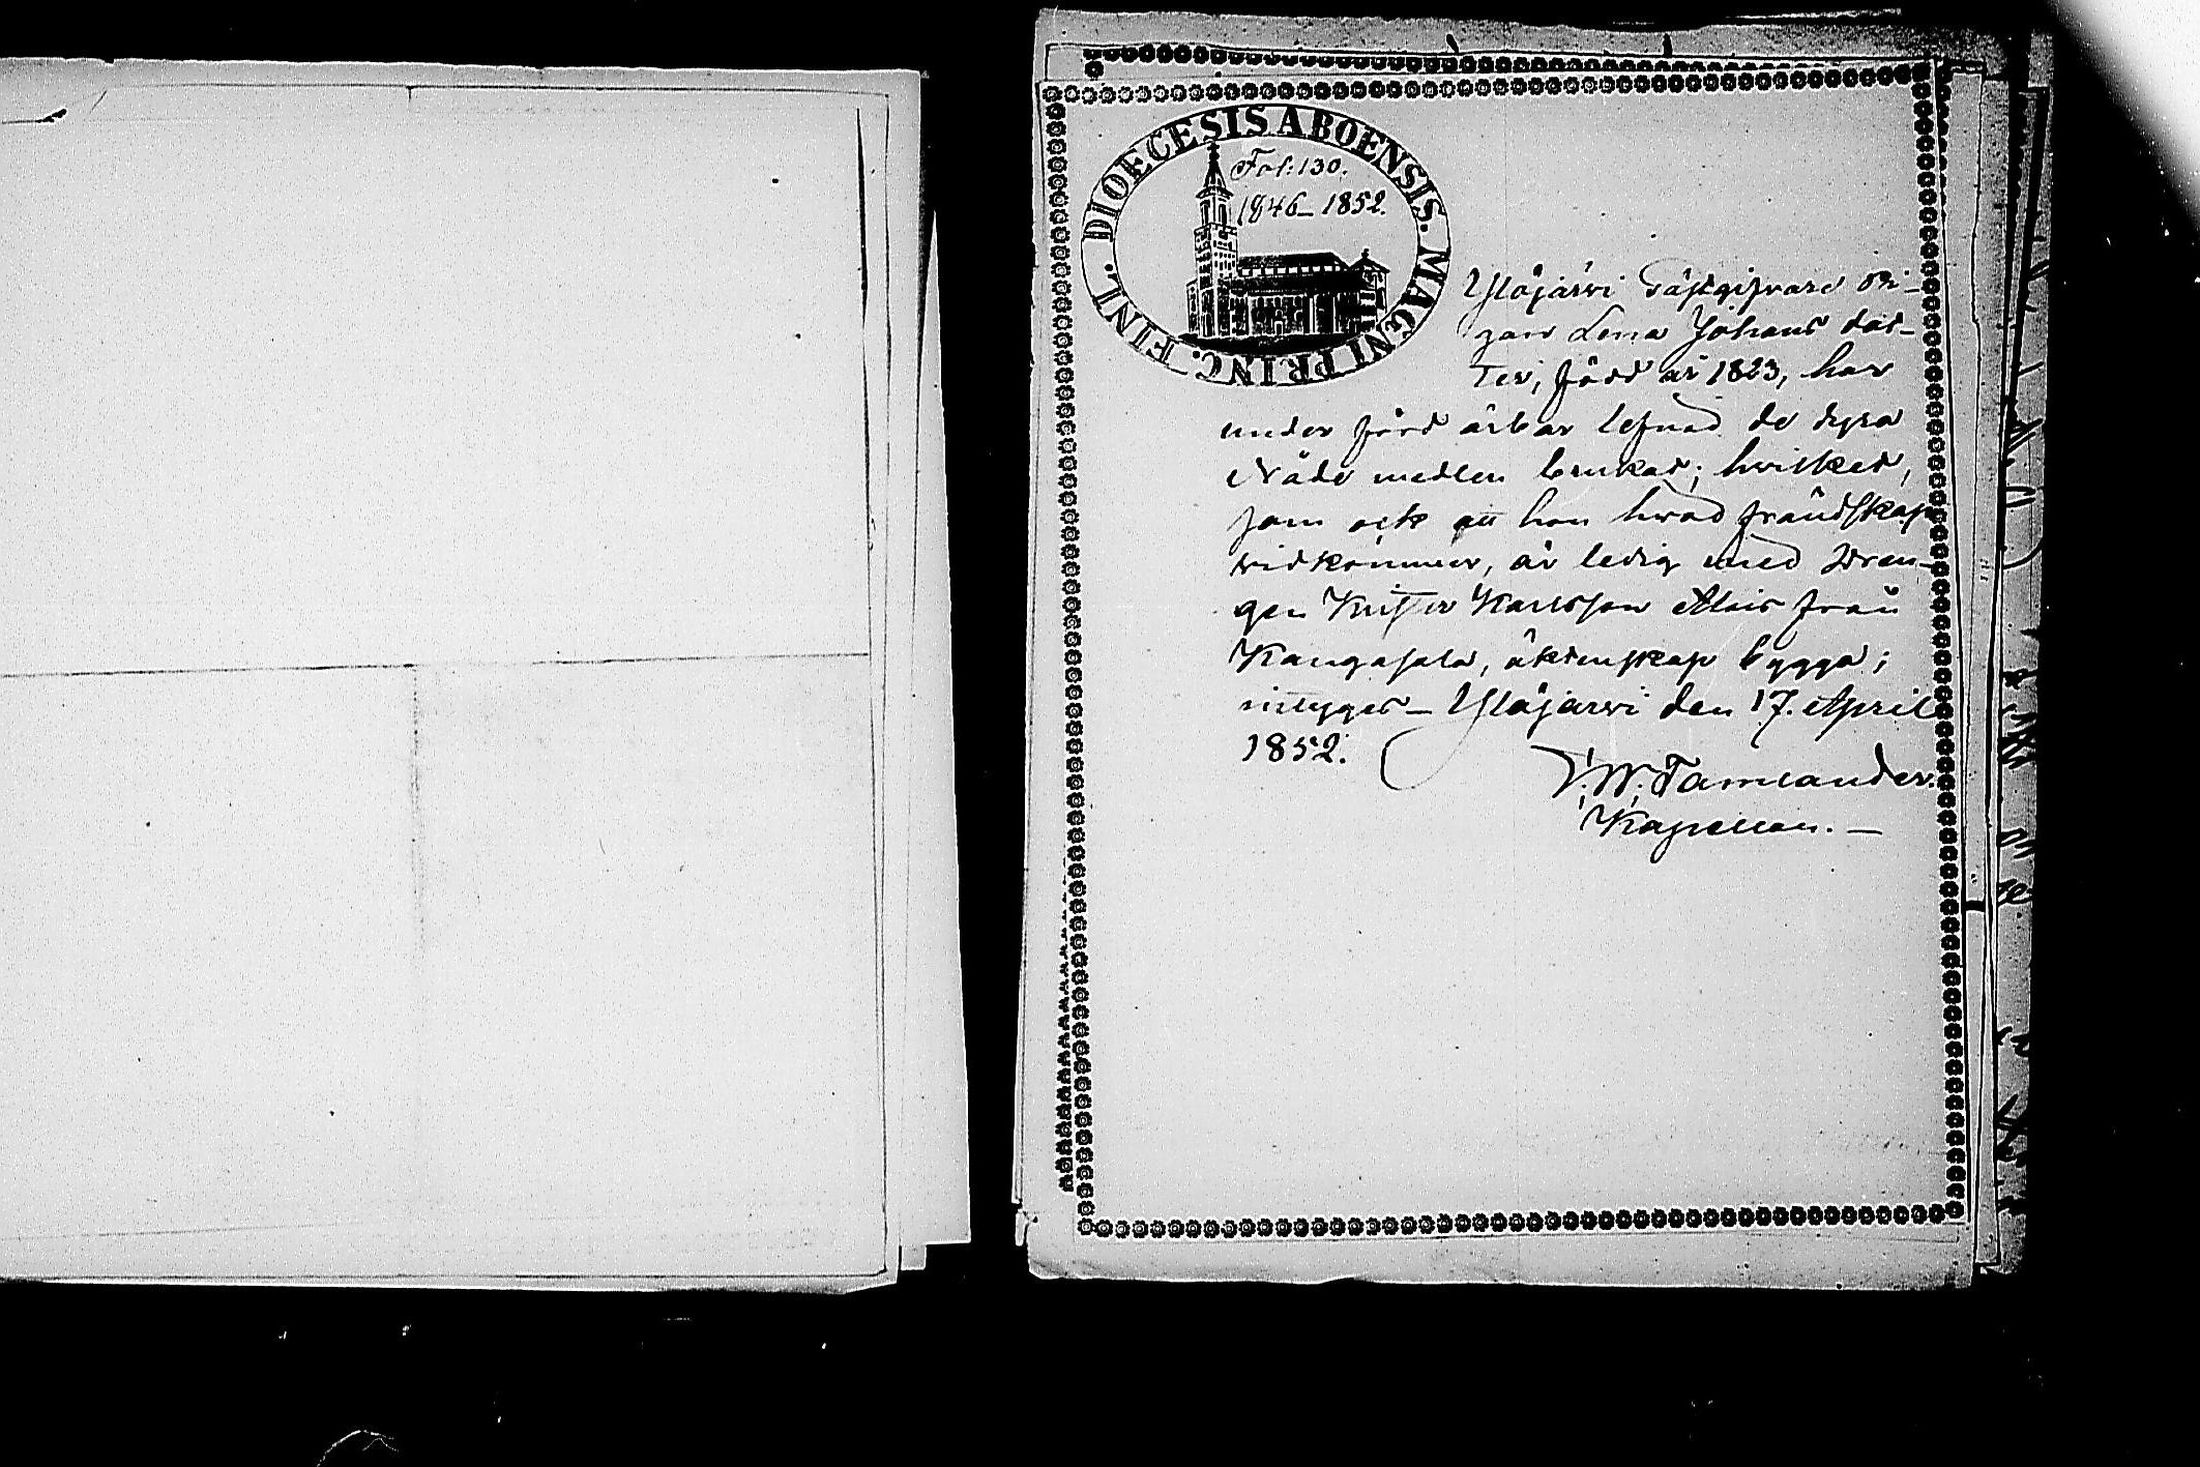 DIOECESIS ABOENSIS. MAGNI PRINC. FINL.
Fol: 130.
1846–1852.
Ylöjärvi Gästgifvare pi-
gan Lena Johans dot-
ter, född år 1823, har
under förd ärbar lefnad de dyra
Nåde medlen brukat; hvilket,
som ock att hon hvad frändskap
vidkommer, är ledig med Dren-
gen Krister Karlsson från
Kangasala, äktenskap bygga;
intygas – Ylöjärvi den 17. April
1852.
W. Tamlander.
Kapellan. –